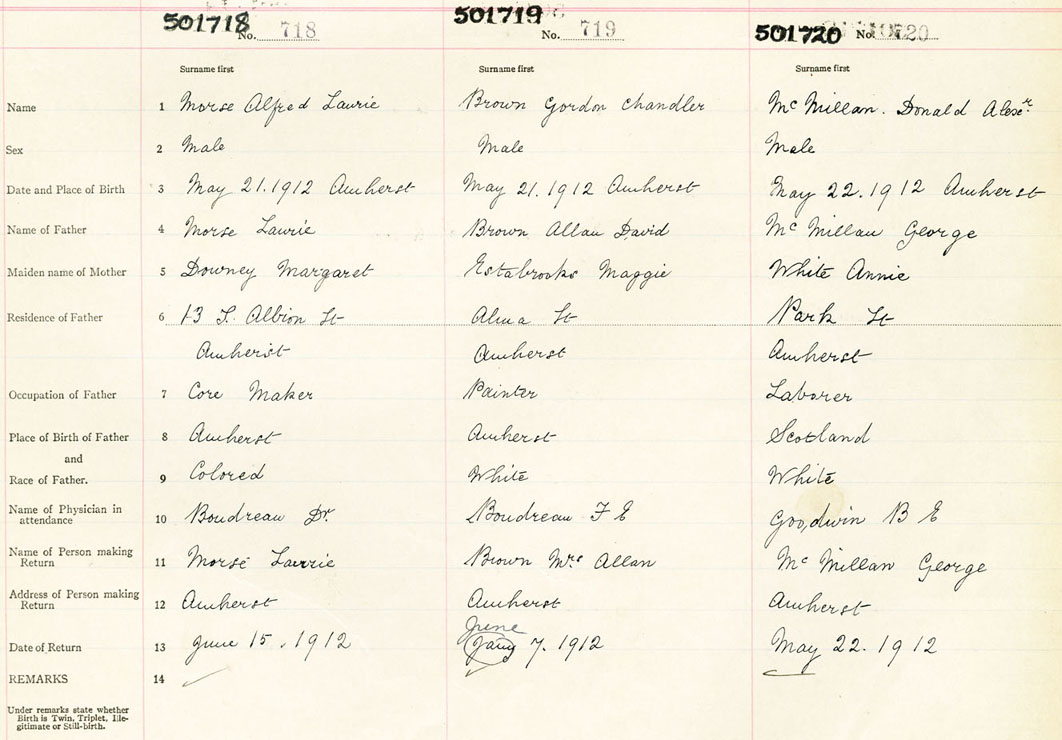 501718 501719 501720
No. 718 No. 719 No. 720
Surname first Surname first Surname first
Name 1 Morse Alfred Laurie Brown Gordon Chandler Mc Millan. Donald Alexr.
Sex 2 Male Male Male
Date and Place of Birth 3 May 21.1912 Amherst May 21.1912 Amherst May 22.1912 Amherst
Name of Father 4 Morse Laurie Brown Allan David Mc Millan George
Maiden name of Mother 5 Downey Margaret Estabrooks Maggie White Annie
Residence of Father 6 13 S. Albion St Alma St Park St
Amherst Amherst Amherst
Occupation of Father 7 Core Maker Painter Laborer
Place of Birth of Father 8 Amherst Amherst Scotland
and
Race of Father. 9 Colored White White
Name of Physician in
attendance 10 Boudreau Dr. Boudreau F E Goodwin B E
Name of Person making
Return 11 Morse Laurie Brown Mrs Allan Mc Millan George
Address of Person making
Return 12 Amherst Amherst Amherst
June
Date of Return 13 June 15. 1912 Jany 7. 1912 May 22. 1912
REMARKS 14
Under remarks state whether
Birth is Twin, Triplet, Ille-
gitimate or Still-birth.